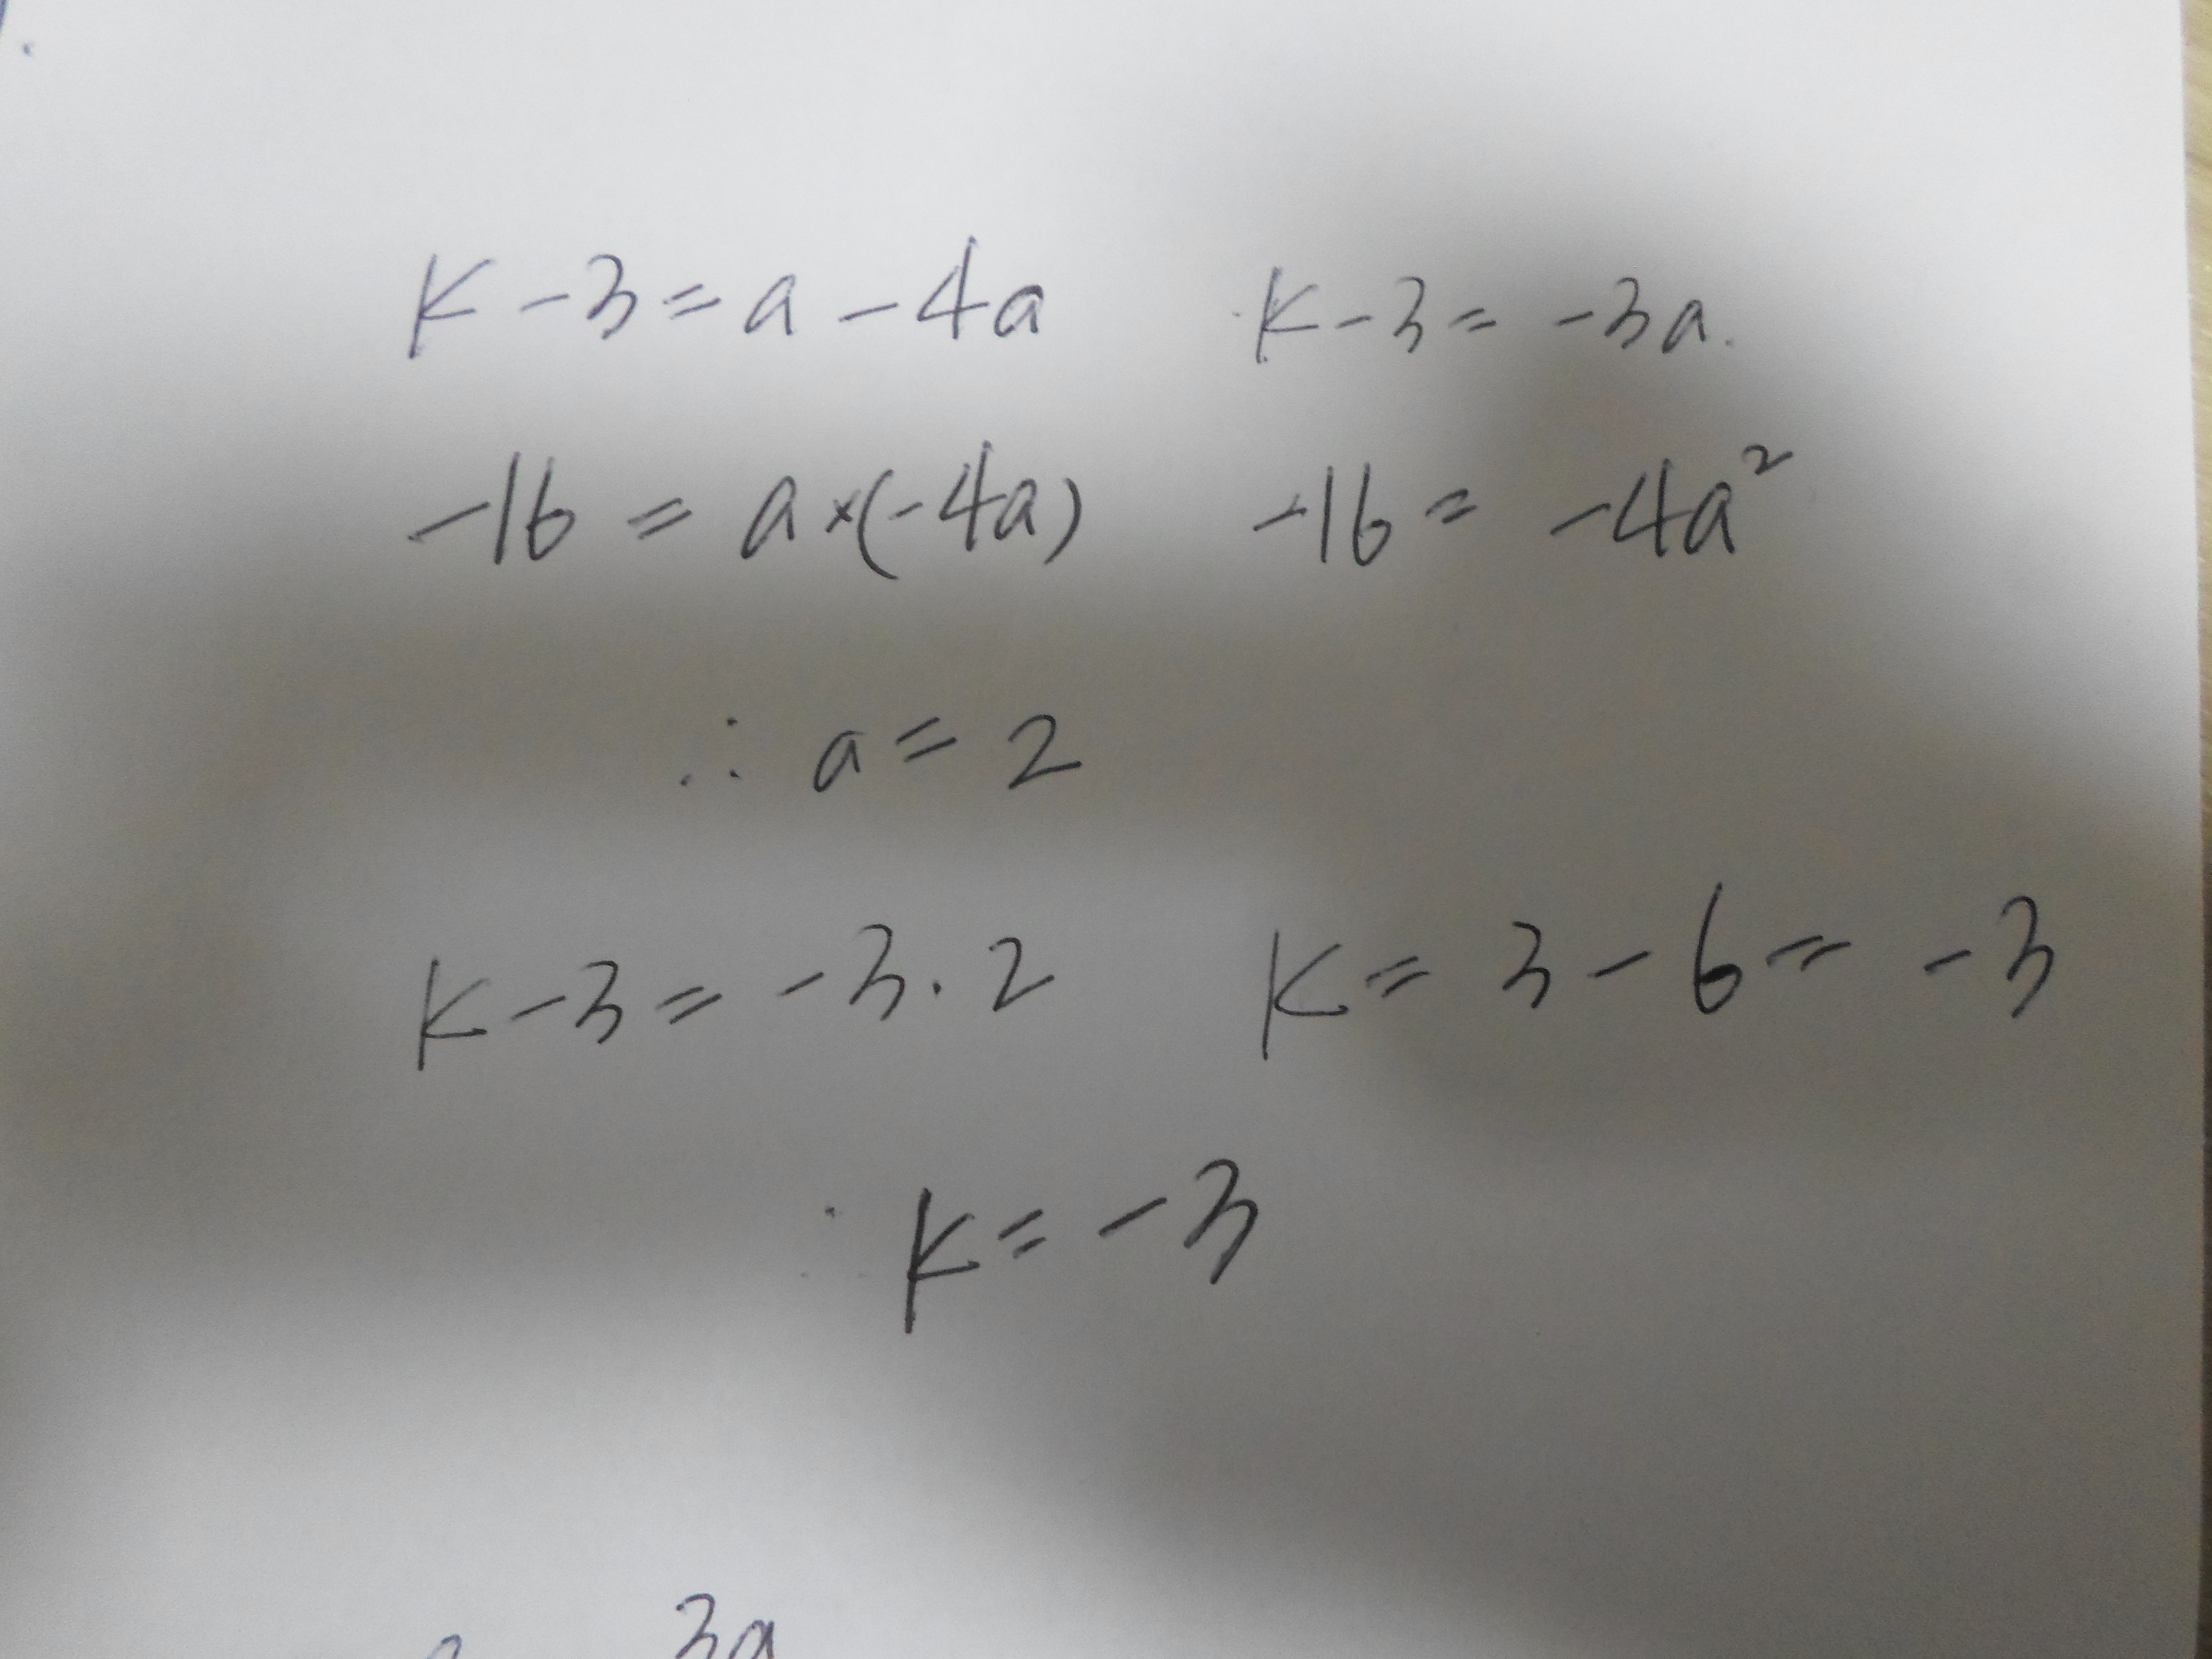 K-3=a-4a K-3=-3a.
-16=a×(-4a) -16=-4a²
∴ a=2
K-3=-3·2 K=3-6=-3
∴ K=-3
3a